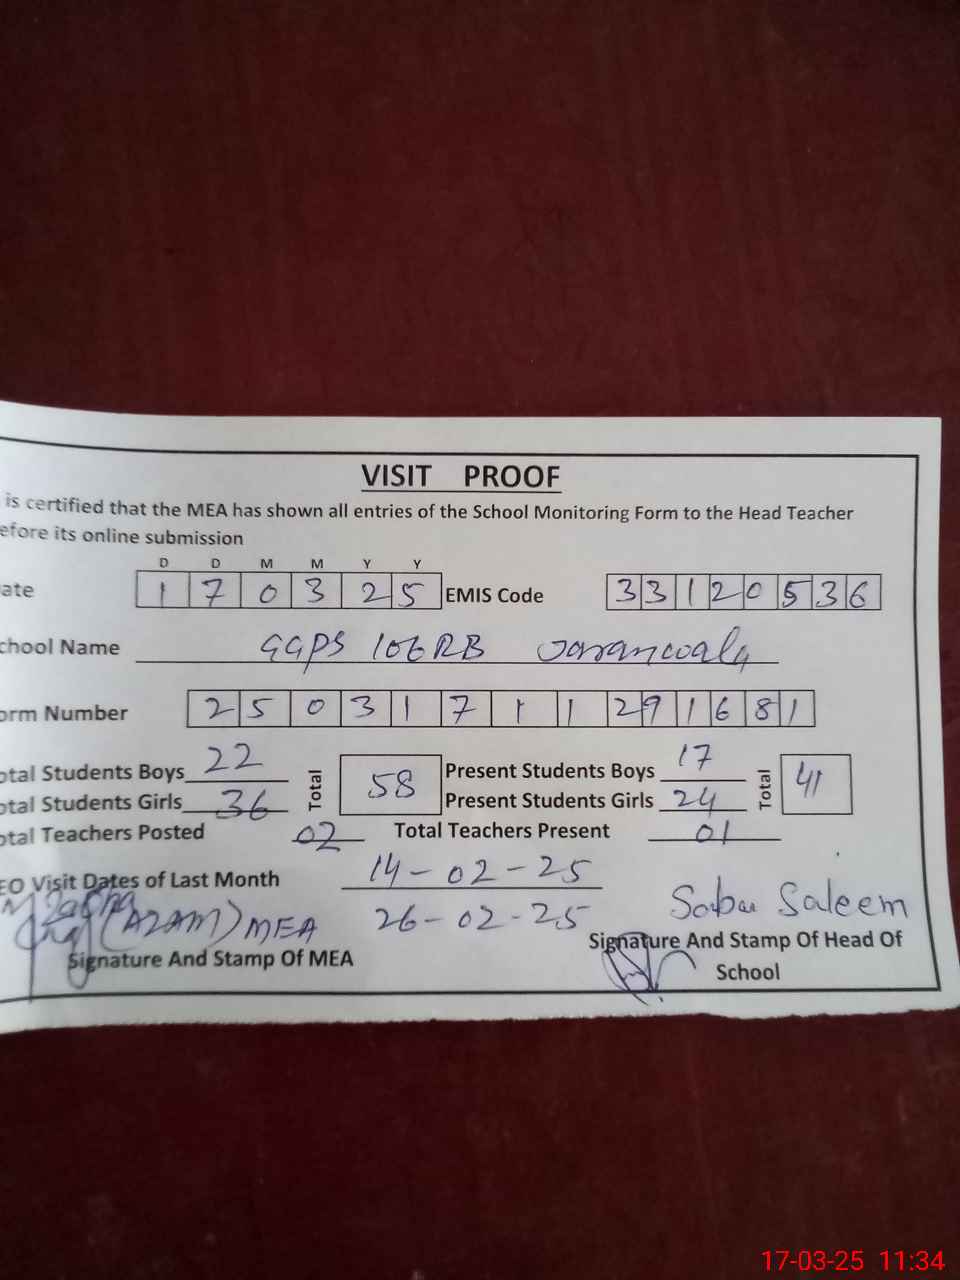 VISIT PROOF
is certified that the MEA has shown all entries of the School Monitoring Form to the Head Teacher
efore its online submission
D D M M Y Y
ate 1 7 0 3 2 5 EMIS Code 3 3 1 2 0 5 3 6
chool Name GGPS 106RB Jaranwala
orm Number 2 5 0 3 1 7 1 1 2 9 1 6 8 1
otal Students Boys 22 Total 58 Present Students Boys 17 Total 41
otal Students Girls 36 Present Students Girls 24
otal Teachers Posted 02 Total Teachers Present 01
EO Visit Dates of Last Month 14-02-25
(AZAM) MEA 26-02-25 Saba Saleem
Signature And Stamp Of MEA Signature And Stamp Of Head Of
School
17-03-25 11:34